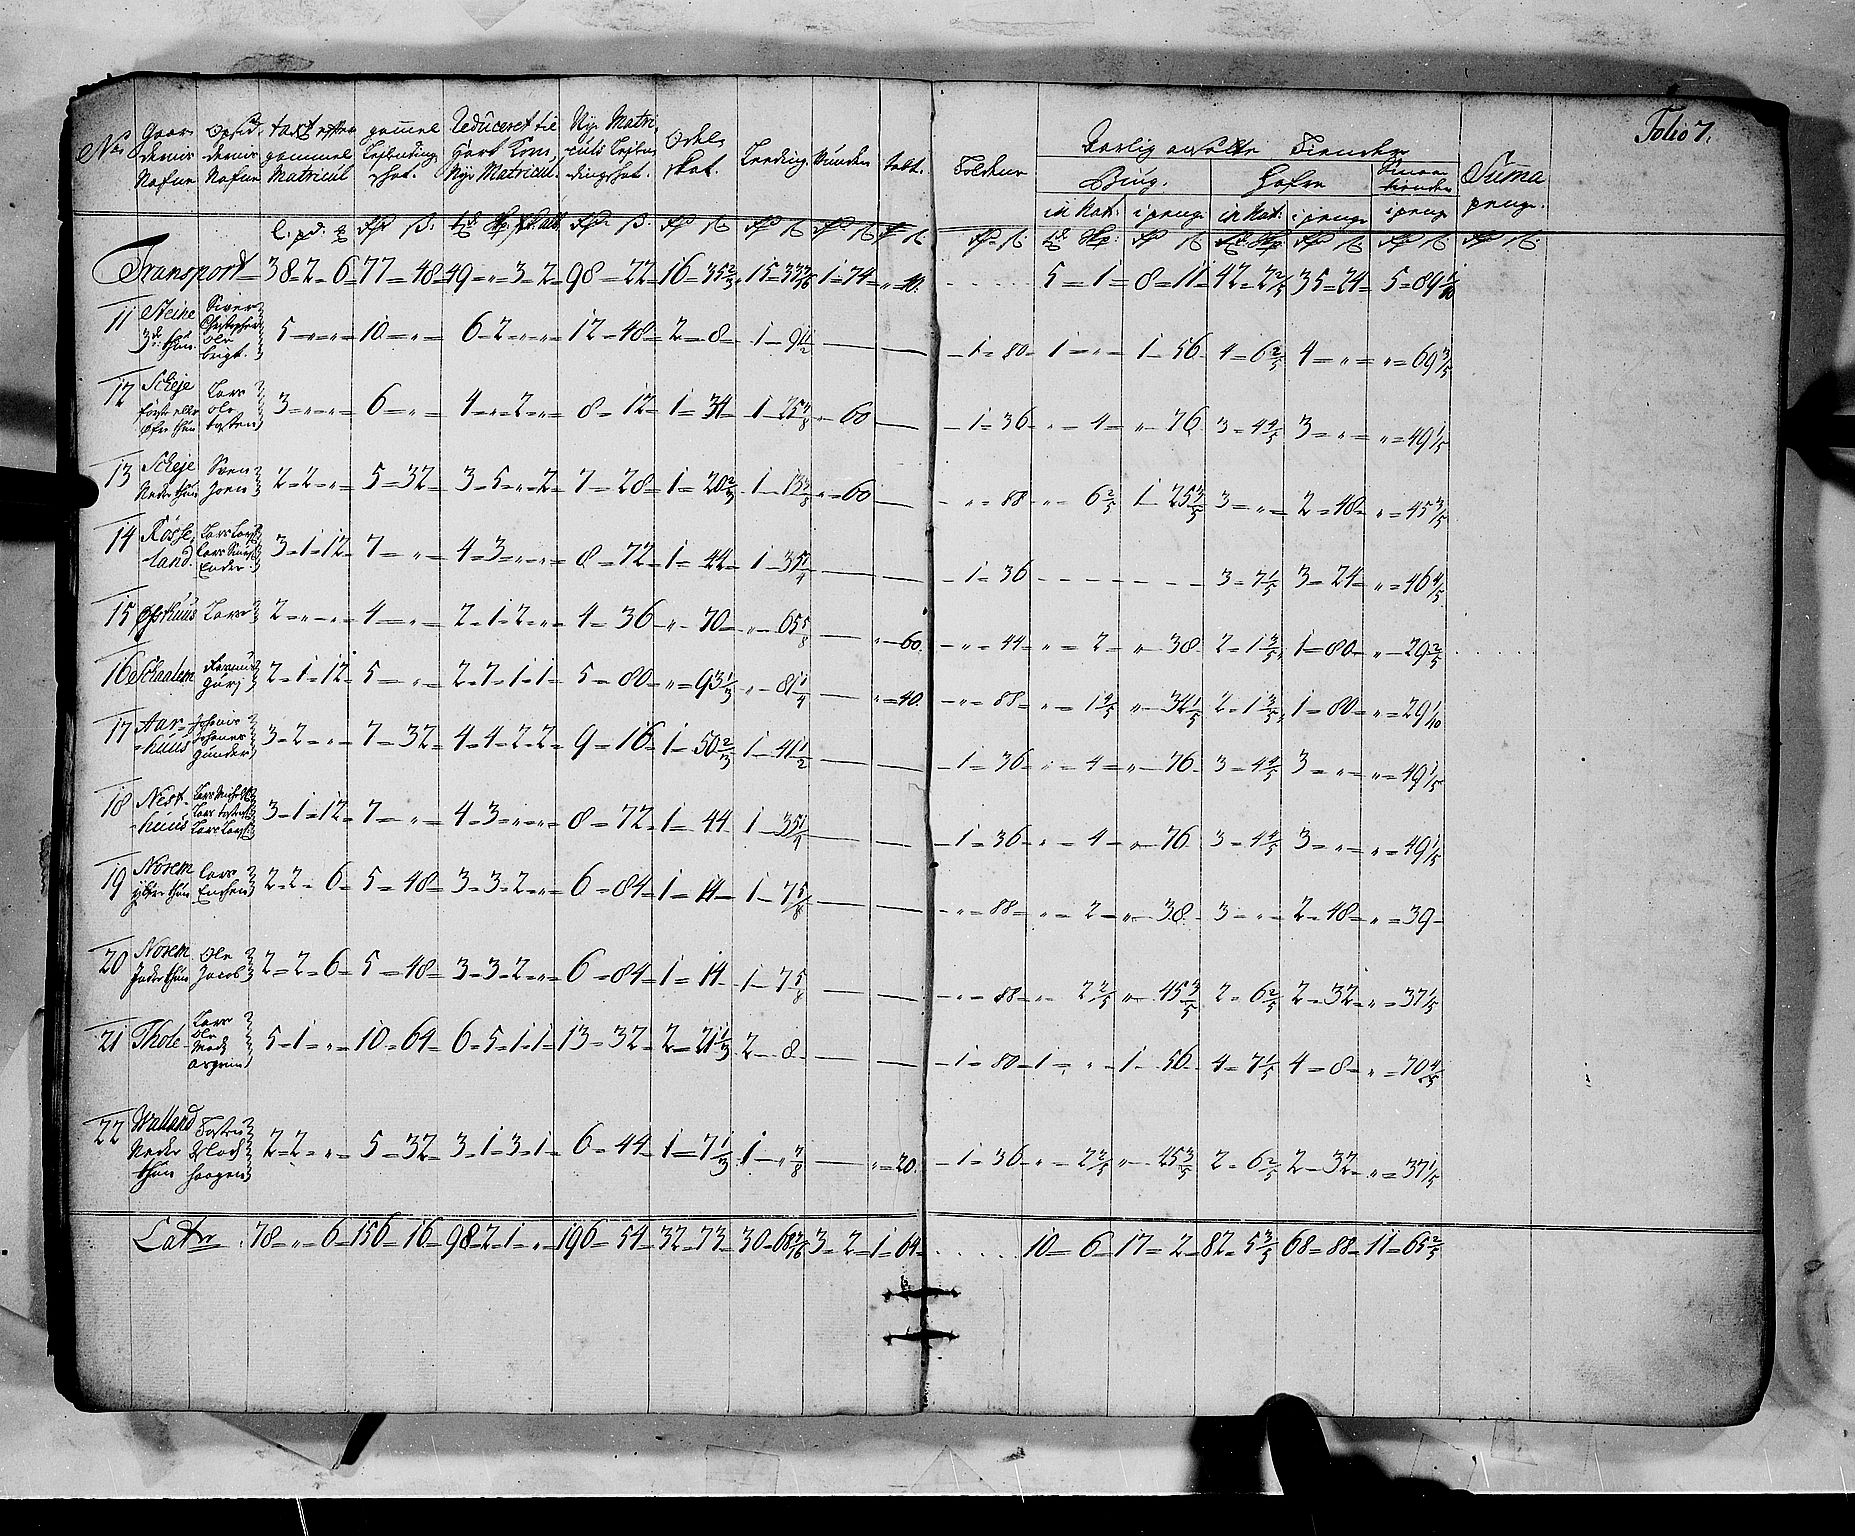 Folio 7.
No Gaardernes Nafne Opsid. dernis Nafne taxt efter gammel Matricul gammel Leilending Skat. Reduceret til Hart Korn, Nye Matricul. Nye Matriculs Leilendingskat. Odels Skat. Leeding Toldene Aarlig ansatte Tiender
Biug. Hafre Smaa tiender Suma penge.
in Nat: i penge in Nat: i penge i penge
Transport 38=2=6 77=48 49="=3=2 98=22 16=35 2/3 15=33 1=74 "=40 5=1 8=11 47=2 2/5 35=24 5=89 1/10
11 Steine 3de thun Siver Christopher Ole brigt. 5="=" 10=" 6=2="=" 12=48 2=8 1=9 1/2 1=80 1=" 1=56 4=6 2/5 4=" "=69 3/5
12 Scheje første eller øfre thun Lars ole tosten 3="=" 6=" 4="=2=" 8=12 1=34 1=25 7/8 "=60 1=36 "=4 "=76 3=4 4/5 3=" "=49 1/5
13 Scheje Neder thun Sven Joen 2=2=" 5=32 3=5="=2 7=28 1=20 2/3 1=13 "=60 "=88 "=6 2/5 1=25 3/5 3=" 2=48 "=45 3/5
14 Røsseland Lars Lars Lars Ender 3=1=12 7=" 4=3="=" 8=72 1=44 1=35 1/4 1=36 3=7 1/5 3=24 "=46 4/5
15 Øfsthuus Lars 2="=" 4=" 2=1=2=" 4=36 "=70 "=65 5/8 "=60 "=44 "=2 "=38 2=1 3/5 1=80 "=29 2/5
16 Schaalem Rasmus Guri 2=1=12 5=" 2=7=1=1 5=80 "=93 1/3 "=81 1/4 "=40 "=88 "=1 4/5 "=34 1/5 2=1 3/5 1=80 "=29 1/10
17 Aarhuus Johanis Johanes Gunder 3=2=" 7=32 4=4=2=2 9=16 1=50 2/3 1=41 1/2 1=36 "=4 "=76 3=4 4/5 3=" "=49 1/5
18 Nesthuus Lars Michels Lars Lars Lars 3=1=12 7=" 4=3="=" 8=72 1=44 1=35 1/4 1=36 "=4 "=76 3=4 4/5 3=" "=49 1/5
19 Norem ytre thun Lars Enchen 2=2=6 5=48 3=3=2=" 6=84 1=14 1=7 5/8 "=88 "=2 "=38 3=" 2=48 "=39
20 Norem Inder thun Ole Jacob 2=2=6 5=48 3=3=2=" 6=84 1=14 1=7 5/8 "=88 "=2 2/5 "=45 3/5 2=6 2/5 2=32 "=37 1/5
21 Thole Lars Ole Mads 5=1=" 10=64 6=5=1=1 13=32 2=21 1/3 2=8 1=80 1=" 1=56 4=7 1/5 4=8 "=70 4/5
22 Walland Neder thun Tosten haagen 2=2=" 5=32 3=1=3=1 6=44 1=7 1/3 1="7/8 "=20 1=36 "=2 2/5 "=45 3/5 2=6 2/5 2=32 "=37 1/5
Latr. 78="=6 156=16 98=2=1=" 196=54 32=73 30=68 3=2 1=64 10=6 17=2 82=5 3/5 68=88 11=65 2/5